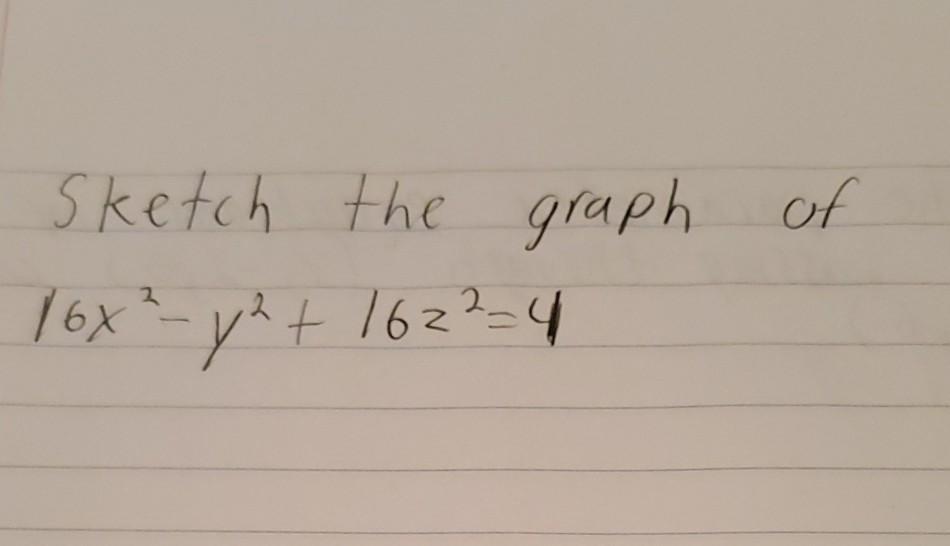 Sketch the graph of
16x² - y² + 16z² = 4